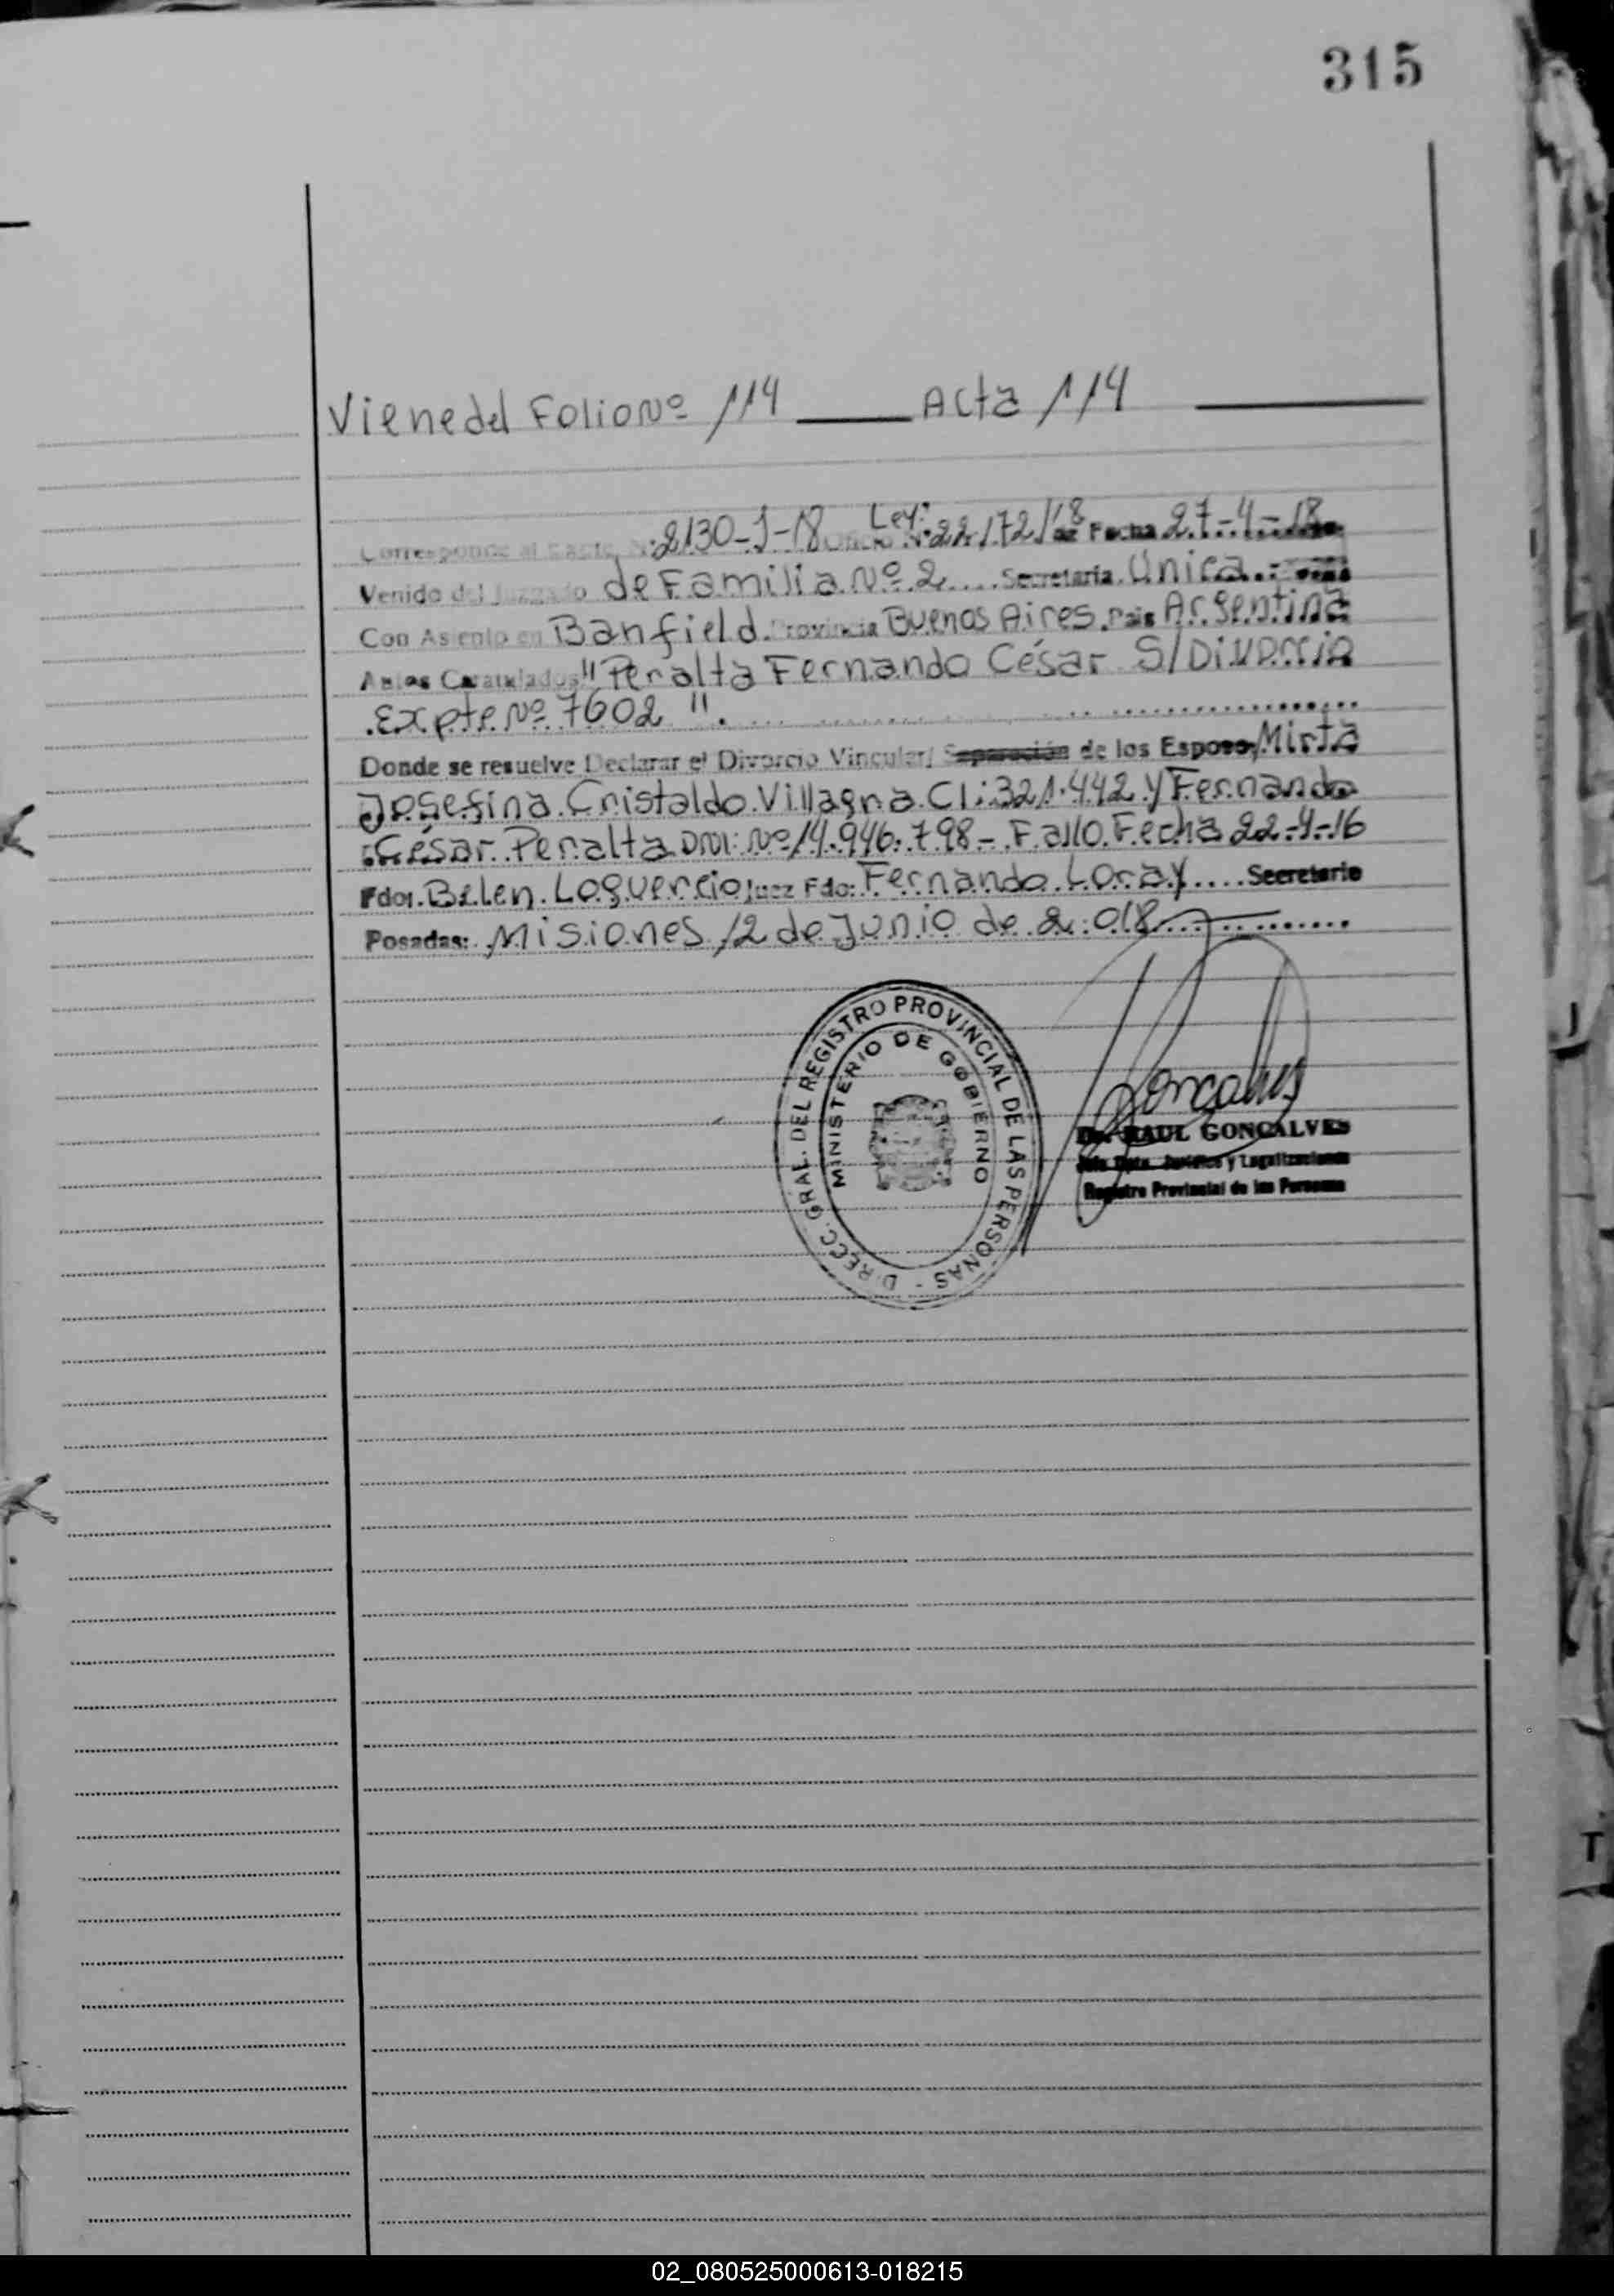 315
Viene del Folio Nº 114 Acta 114
Corresponde al Expte. Nº 2130-J-18 Oficio Ley: Nº 22.172/18 de Fecha 27-4-18
Venido del Juzgado de Familia Nº 2 Secretaria Única
Con Asiento en Banfield Provincia Buenos Aires País Argentina
Autos Caratulados "Peralta Fernando César S/Divorcio
Expte Nº 7602".
Donde se resuelve Declarar el Divorcio Vincular/ Separación de los Esposos, Mirta
Josefina Cristaldo Villagra CI: 321.442 y Fernando
César Peralta DNI: Nº 14.946.798 - Fallo Fecha 22-4-16
Fdo: Belen Loguercio Juez Fdo: Fernando Loray Secretario
Posadas: Misiones 12 de Junio de 2.018
DIRECC. GRAL. DEL REGISTRO PROVINCIAL DE LAS PERSONAS -
MINISTERIO DE GOBIERNO
Gonçalves
Dr. RAUL GONÇALVES
Jefe Dpto. Jurídico y Legalizaciones
Registro Provincial de las Personas
J
T
02_080525000613-018215